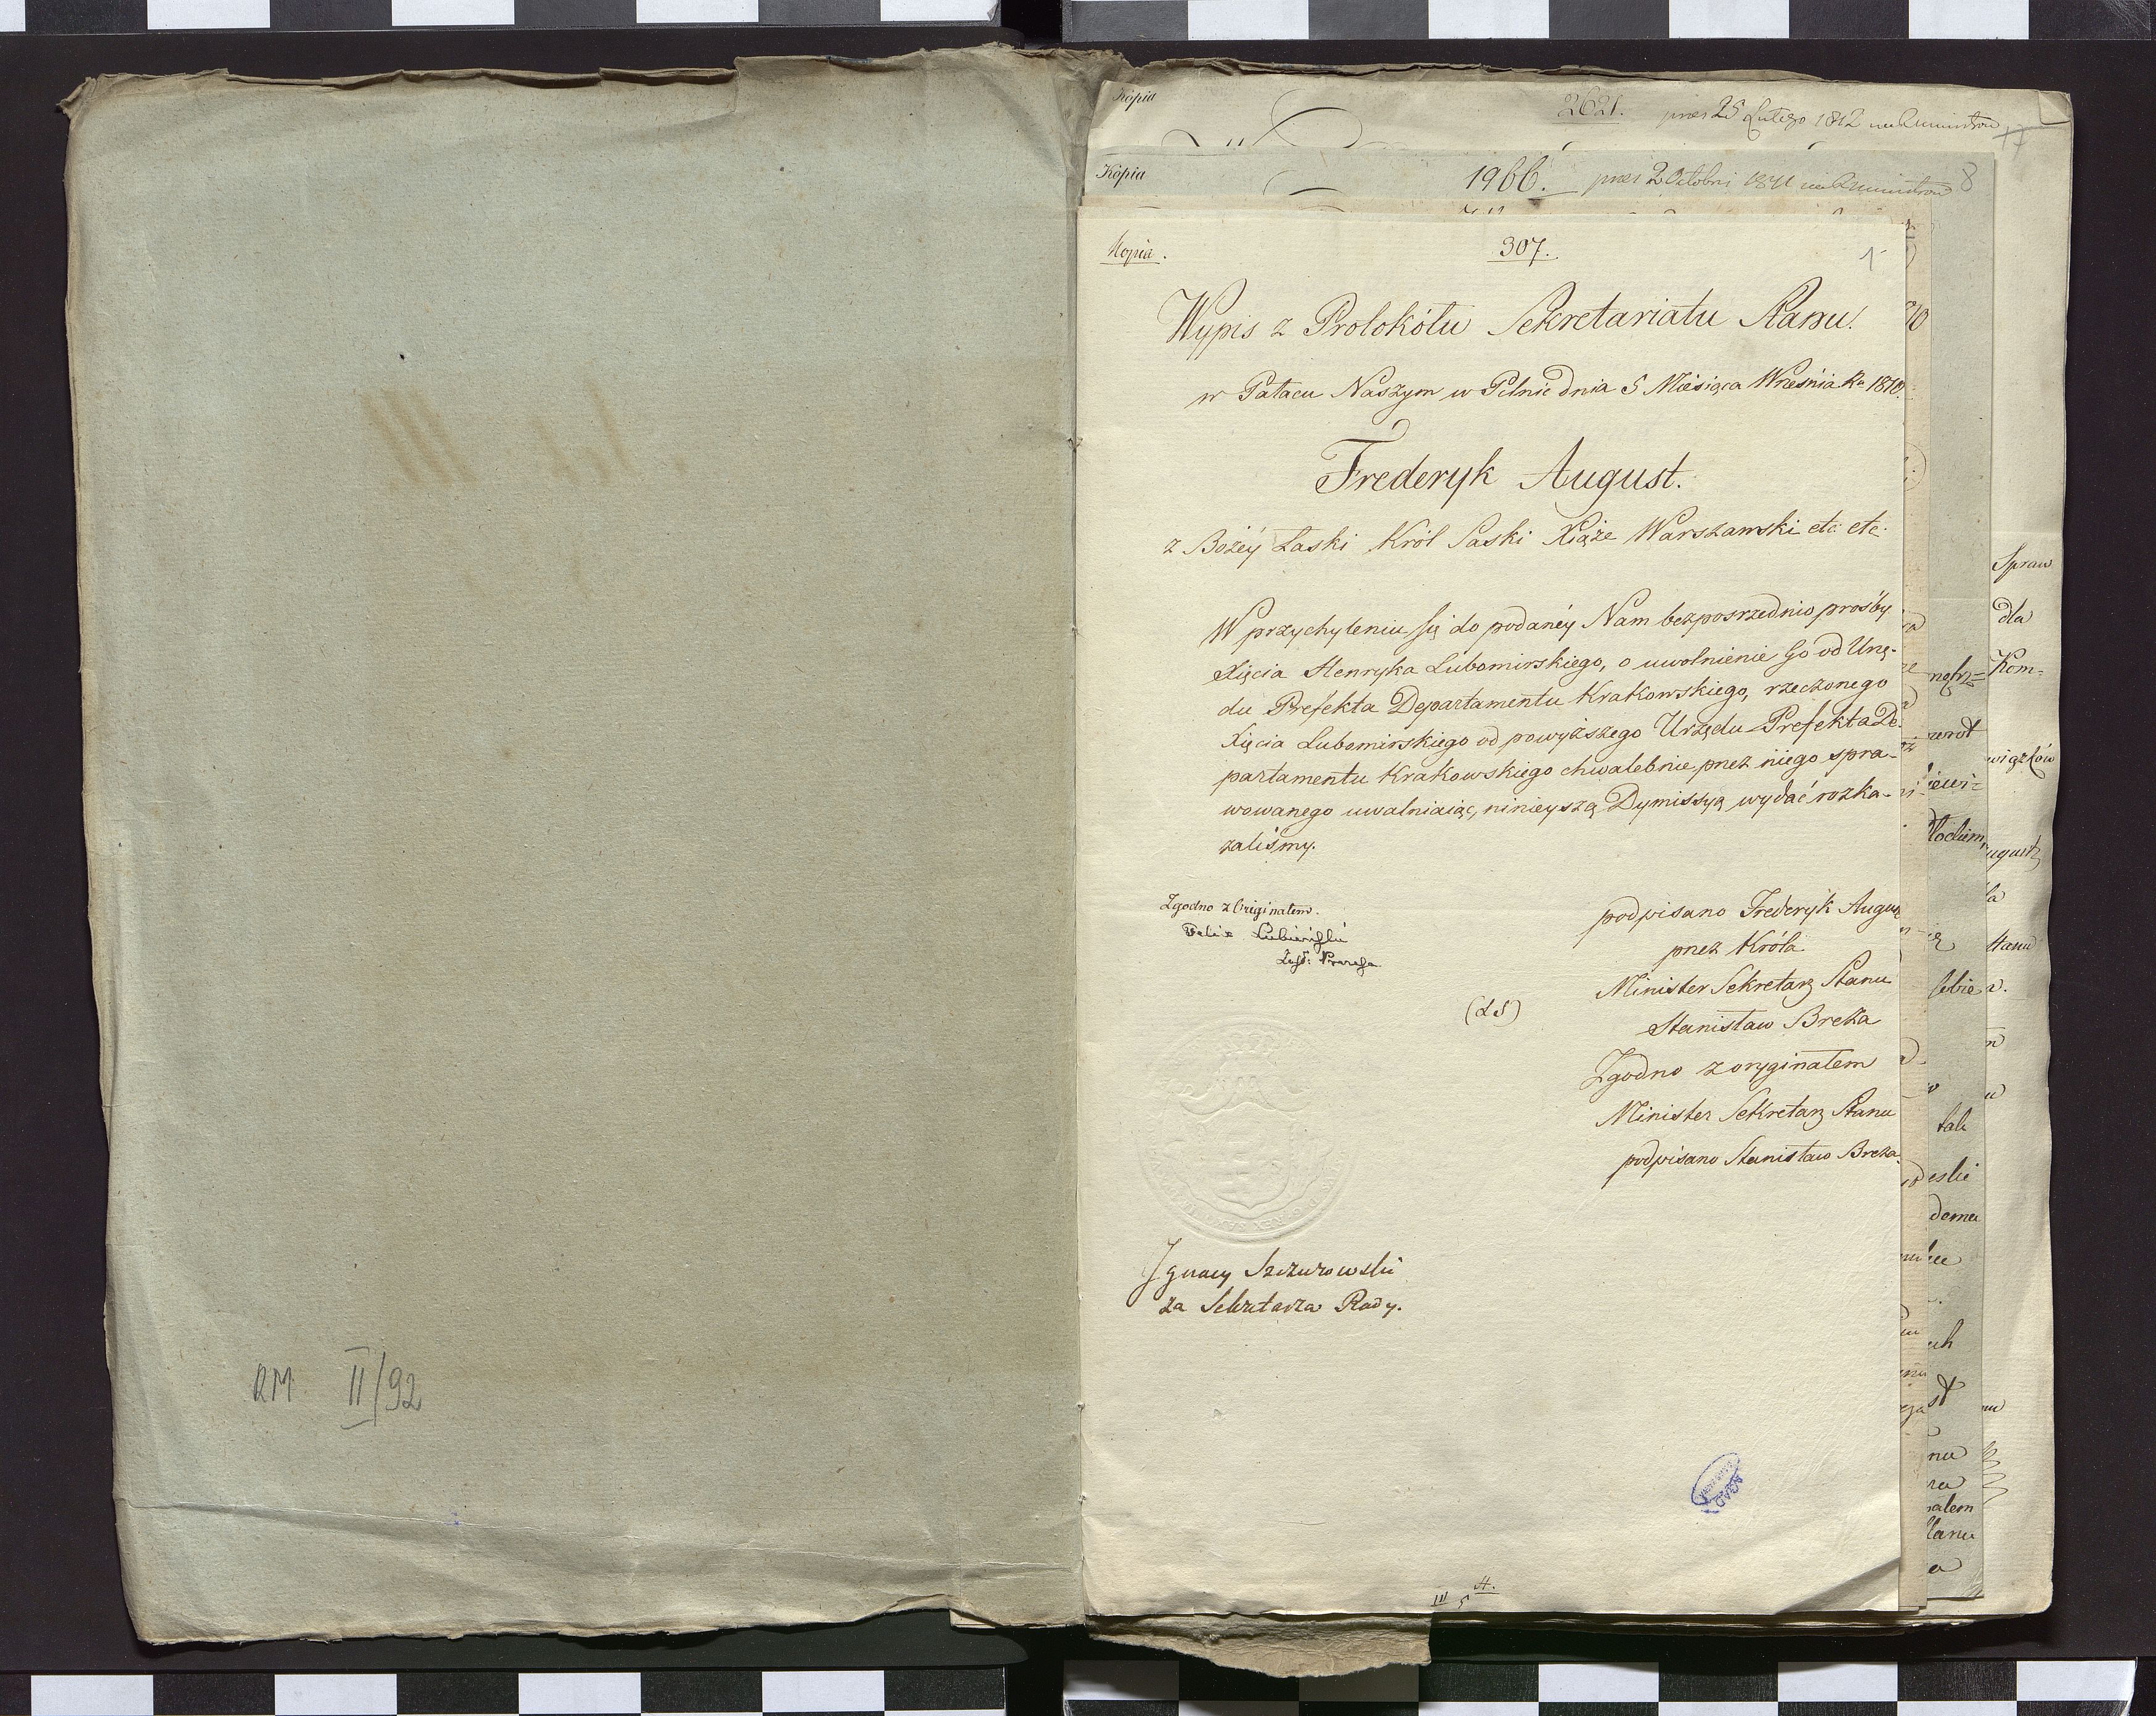 RM II/92
Kopia
2621. prez 25 Lutego 1812
17
Kopia
1966. prez 2 Octobri 1811
8
Kopia.
307.
1
Wypis z Protokółu Sekretariatu Stanu.
w Pałacu Naszym w Pilnic dnia 5 Miesiąca Września Ro 1810.
Frederyk August.
z Bożéy Łaski Król Saski Xiąże Warszawski etc: etc:
W przychyleniu się do podanéy Nam bezposrzednio prośby
Xięcia Henryka Lubomirskiego, o uwolnienie Go od Urzę-
du Prefekta Departamentu Krakowskiego, rzeczonego
Xięcia Lubomirskiego od powyższego Urzędu Prefekta De-
partamentu Krakowskiego chwalebnie przez niego spra-
wowanego uwalniaiąc, ninieyszą Dymissyą wydać rozka-
zaliśmy.
Zgodno z Originałem.
Felix Lubieński
Zast: Prezesa
podpisano Frederyk Augus
przez Króla
Minister Sekretarz Stanu
(LS)
Stanisław Breza
Zgodno z oryginałem
Minister Sekretarz Stanu
podpisano Stanisław Breza.
Ignacy Szczurowski
za Sekretarza Rady.
AGAD
III 5 H.
Spraw
dla
Kom-
wiązków